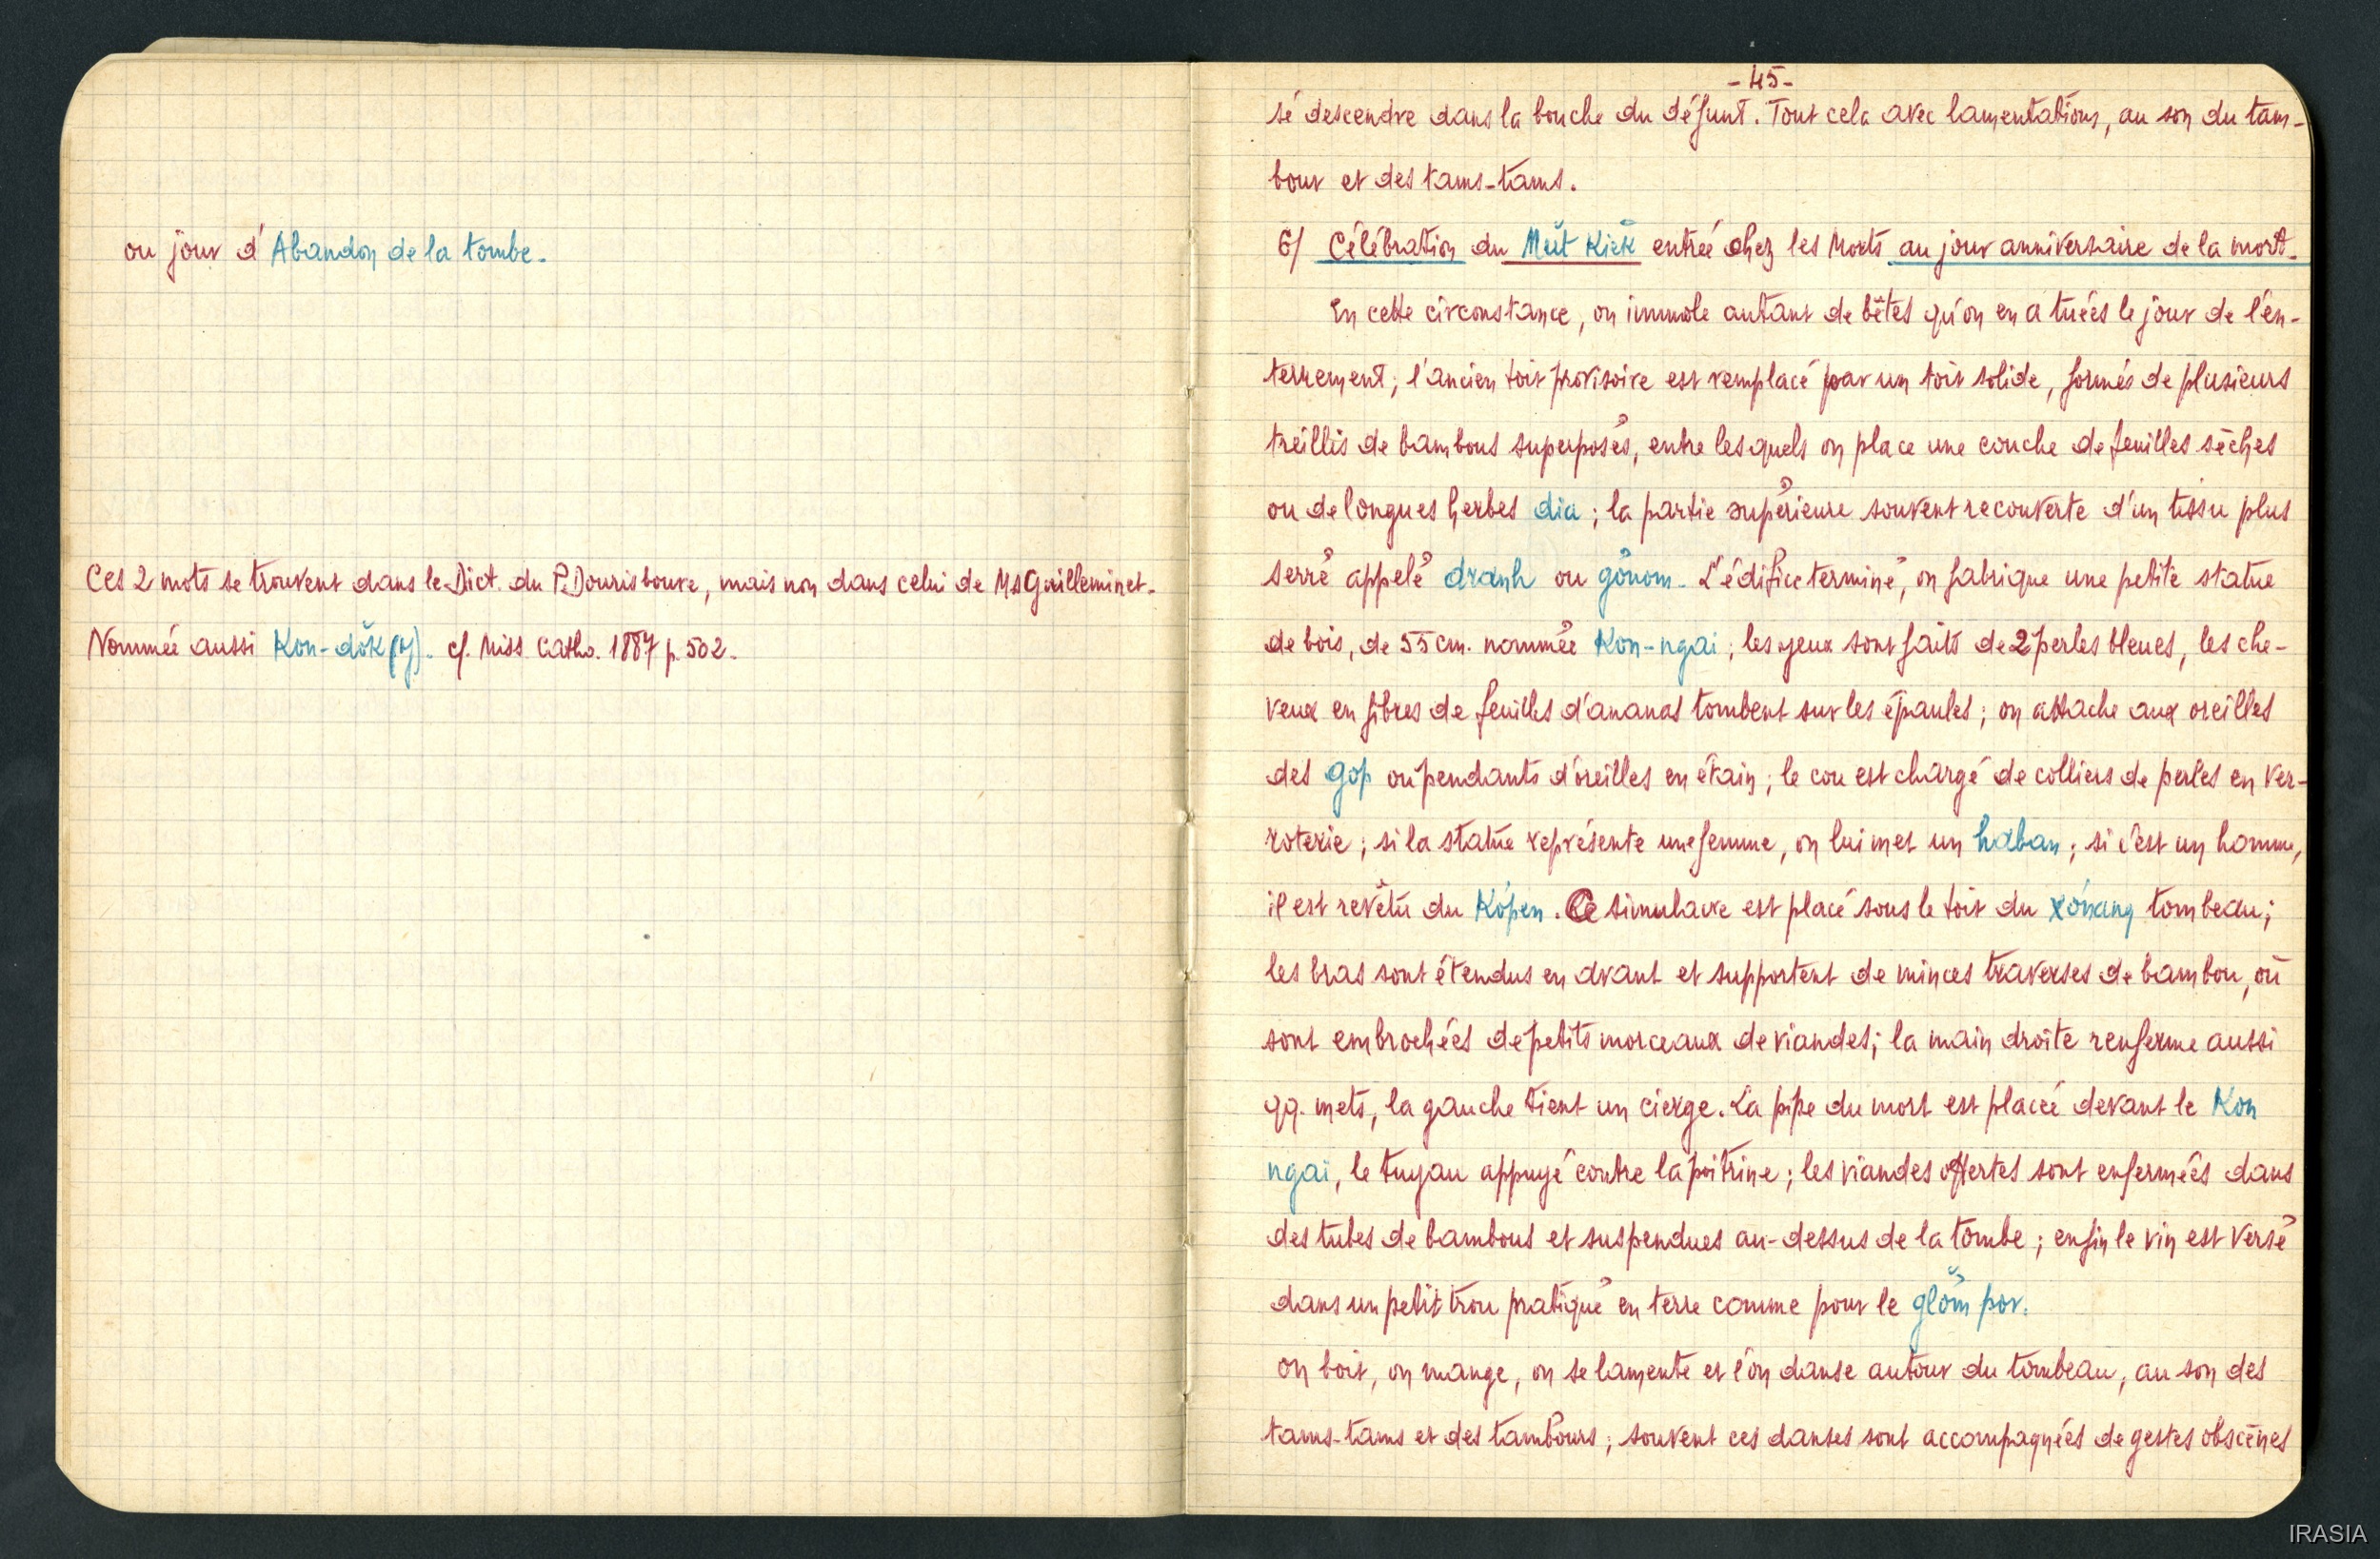 ou jour d'Abandon de la tombe.
Ces 2 mots se trouvent dans le Dict. du P. Dourisboure, mais non dans celui de M. Guilleminet.
Nommée aussi Kon-dŏk (y). cf. Miss. Catho. 1887 p. 502.
- 45 -
sé descendre dans la bouche du défunt. Tout cela avec lamentations, au son du tam-
bour et des tams-tams.
6/ Célébration du Mŭt Kiĕk entrée chez les Morts au jour anniversaire de la mort.
En cette circonstance, on immole autant de bêtes qu'on en a tuées le jour de l'en-
terrement; l'ancien toit provisoire est remplacé par un toit solide, formés de plusieurs
treillis de bambous superposés, entre lesquels on place une couche de feuilles sèches
ou de longues herbes dia; la partie supérieure souvent recouverte d'un tissu plus
serré appelé dranh ou gơnom. L'édifice terminé, on fabrique une petite statue
de bois, de 55 cm. nommée Kon-ngai; les yeux sont faits de 2 perles bleues, les che-
veux en fibres de feuilles d'ananas tombent sur les épaules; on attache aux oreilles
des gop ou pendants d'oreilles en étain; le cou est chargé de colliers de perles en ver-
roterie; si la statue représente une femme, on lui met un haban; si c'est un homme,
il est revêtu du Kơpen. Ce simulacre est placé sous le toit du xơnang tombeau;
les bras sont étendus en avant et supportent de minces traverses de bambou, où
sont embrochées de petits morceaux de viandes; la main droite renferme aussi
qq. mets, la gauche tient un cierge. La pipe du mort est placée devant le Kon
ngai, le tuyau appuyé contre la poitrine; les viandes offertes sont enfermées dans
des tubes de bambous et suspendues au-dessus de la tombe; enfin le vin est versé
dans un petit trou pratiqué en terre comme pour le glơ̆m por.
on boit, on mange, on se lamente et l'on danse autour du tombeau, au son des
tams-tams et des tambours; souvent ces danses sont accompagnées de gestes obscènes
IRASIA